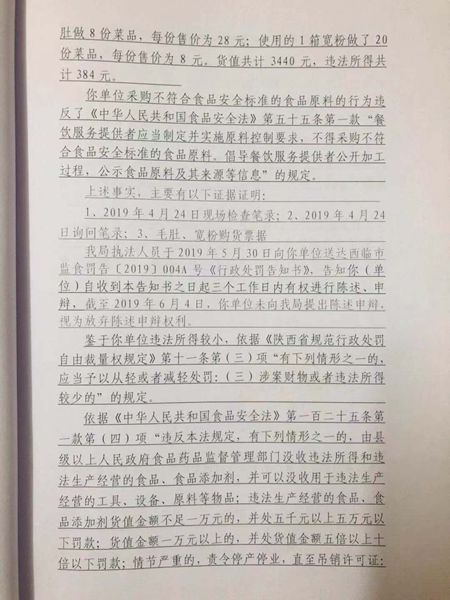 肚做 8 份菜品，每份售价为 28 元；使用的 1 箱宽粉做了 20
份菜品，每份售价为 8 元。货值共计 3440 元，违法所得共
计 384 元。
你单位采购不符合食品安全标准的食品原料的行为违
反了《中华人民共和国食品安全法》第五十五条第一款“餐
饮服务提供者应当制定并实施原料控制要求，不得采购不符
合食品安全标准的食品原料。倡导餐饮服务提供者公开加工
过程，公示食品原料及其来源等信息”的规定。
上述事实，主要有以下证据证明：
1、2019 年 4 月 24 日现场检查笔录；2、2019 年 4 月 24
日询问笔录；3、毛肚、宽粉购货票据
我局执法人员于 2019 年 5 月 30 日向你单位送达西临市
监食罚告〔2019〕004A 号《行政处罚告知书》，告知你（单
位）自收到本告知书之日起三个工作日内有权进行陈述、申
辩，截至 2019 年 6 月 4 日，你单位未向我局提出陈述申辩，
视为放弃陈述申辩权利。
鉴于你单位违法所得较小，依据《陕西省规范行政处罚
自由裁量权规定》第十一条第（三）项“有下列情形之一的，
应当予以从轻或者减轻处罚：（三）涉案财物或者违法所得
较少的”的规定。
依据《中华人民共和国食品安全法》第一百二十五条第
一款第（四）项“违反本法规定，有下列情形之一的，由县
级以上人民政府食品药品监督管理部门没收违法所得和违
法生产经营的食品、食品添加剂，并可以没收用于违法生产
经营的工具、设备、原料等物品；违法生产经营的食品、食
品添加剂货值金额不足一万元的，并处五千元以上五万元以
下罚款；货值金额一万元以上的，并处货值金额五倍以上十
倍以下罚款；情节严重的，责令停产停业，直至吊销许可证：